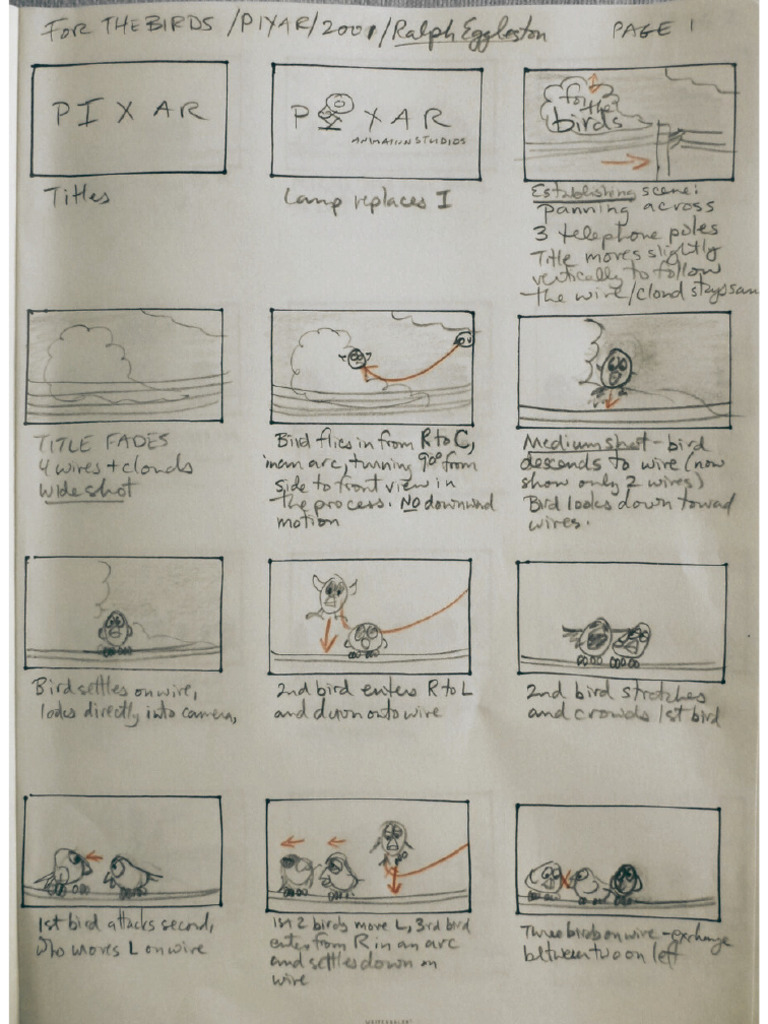 FOR THE BIRDS / PIXAR / 2001 / Ralph Eggleston PAGE 1
PIXAR
P XAR
ANIMATION STUDIOS
for
the
birds
Titles
Lamp replaces I
Establishing scene:
panning across
3 telephone poles
Title moves slightly
vertically to follow
the wire/cloud stays sam
TITLE FADES
4 wires + clouds
wide shot
Bird flies in from R to C,
in an arc, turning 90° from
side to front view in
the process. NO downward
motion
Medium shot - bird
descends to wire (now
show only 2 wires)
Bird looks down toward
wires.
Bird settles on wire,
looks directly into camera,
2nd bird enters R to L
and down onto wire
2nd bird stretches
and crowds 1st bird
1st bird attacks second,
who moves L on wire
1st 2 birds move L, 3rd bird
enter from R in an arc
and settles down on
wire
Three birds on wire - exchange
between two on left